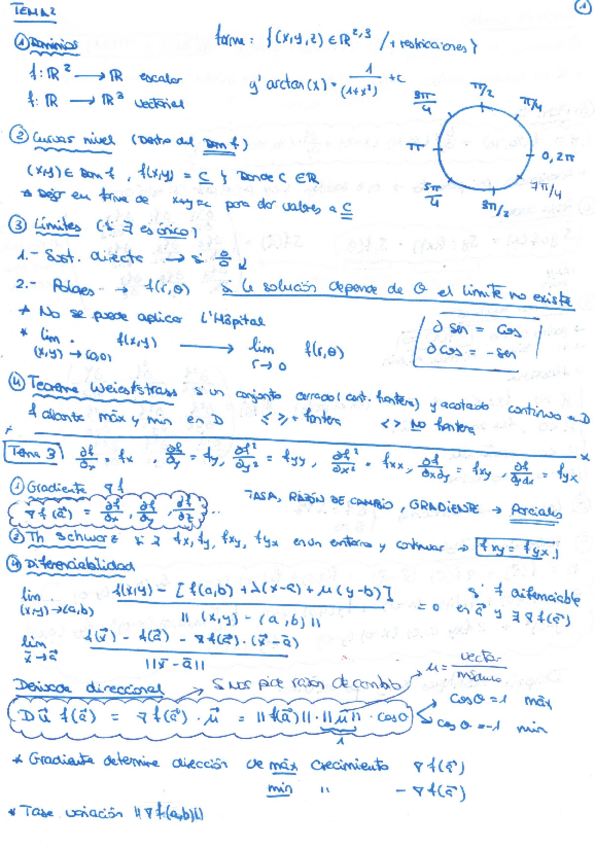 TEMA 2
①
① Dominios
forma: {(x,y,z) ∈ ℝ^2,3 / + restricciones}
f: ℝ² ⟶ ℝ escalar
y' arctan(x) = 1/(1+x²) + c
f: ℝ ⟶ ℝ³ vectorial
π/2
3π/4
π/4
π
0, 2π
5π/4
7π/4
3π/2
② Curvas nivel (Dentro del Dom f)
(x,y) ∈ Dom f, f(x,y) = C } Donde C ∈ ℝ
* Dejar en forma de x+y=c para dar valores a C
③ Límites (si ∃ es único)
1.- Sust. directa → si 0/0 ↓
2.- Polares → f(r,θ) si la solución depende de θ el límite no existe
* No se puede aplicar L'Hôpital
* lim (x,y)→(0,0) f(x,y) ⟶ lim r→0 f(r,θ)
∂ sen = cos
∂ cos = -sen
④ Teorema Weierstrass si un conjunto cerrado (cont. frontera) y acotado continuo en D
f alcanza máx y min en D ≤ ≥ = frontera < > No frontera
Tema 3 ∂f/∂x = fx, ∂f/∂y = fy, ∂f²/∂y² = fyy, ∂f²/∂x² = fxx, ∂f/∂x∂y = fxy, ∂f/∂y∂x = fyx
① Gradiente ∇f
∇f(a⃗) = ∂f/∂x, ∂f/∂y, ∂f/∂z ...
TASA, RAZÓN DE CAMBIO, GRADIENTE → Parciales
② Th Schwarz si ∃ fx, fy, fxy, fyx en un entorno y continuar → fxy = fyx
④ Diferenciabilidad
lim (x,y)→(a,b) f(x,y) - [f(a,b) + λ(x-a) + μ(y-b)] / ||(x,y) - (a,b)|| = 0 si f diferenciable en a⃗ y ∃ ∇f(a⃗)
lim x⃗→a⃗ f(x⃗) - f(a⃗) - ∇f(a⃗)·(x⃗-a⃗) / ||x⃗-a⃗||
Derivada direccional → Si nos pide razón de cambio → u = vector/módulo
D u⃗ f(a⃗) = ∇f(a⃗) · u⃗ = ||f(a⃗)|| · ||u⃗|| · cos θ
1
cos θ = 1 máx
cos θ = -1 min
* Gradiente determina dirección de máx crecimiento ∇f(a⃗)
min " - ∇f(a⃗)
* Tasa variación ||∇f(a,b)||